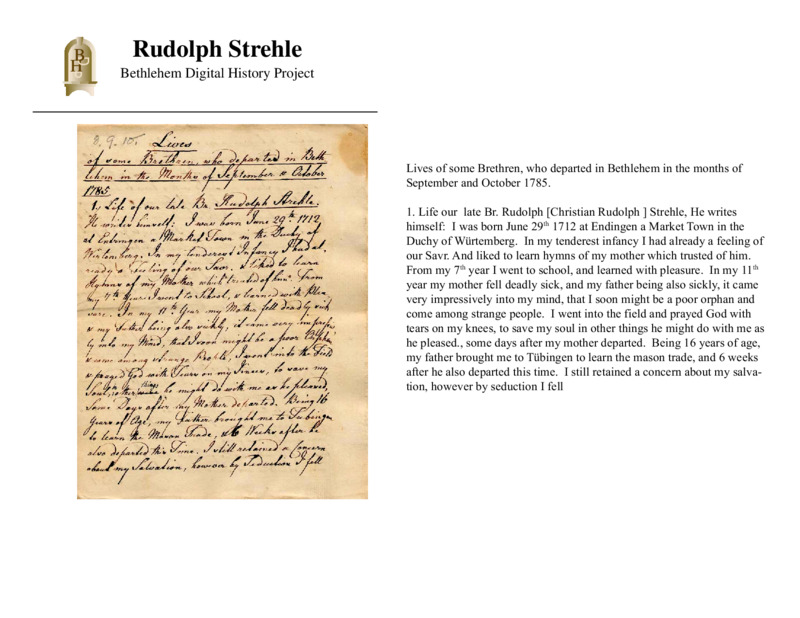 Rudolph Strehle
Bethlehem Digital History Project
BH
8.9.10. Lives
of some Brethren, who departed in Beth
lehem in the Months of September & October
1785.
1. Life of our late Br. Rudolph Strehle.
He writes himself: I was born June 29th 1712
at Entringen a Market Town in the Duchy of
Wirtemberg. In my tenderest Infancy I had al-
ready a Feeling of our Savr. & liked to learn
Hymns of my Mother which treated of him. From
my 7th Year I went to School, & learned with Plea
sure. In my 11th Year my Mother fell deadly sick
& my Father being also sickly, it came very impressi
ly into my Mind, that I soon might be a poor Orphan
& come among strange People, I went into the Field
& prayed God with Tears on my Knees, to save my
Soul, in other things he might do with me as he pleased,
some Days after my Mother departed. Being 16
Years of Age, my Father brought me to Tubingen
to learn the Mason Trade, & 6 Weeks after he
also departed this Time. I still retained a Concern
about my Salvation, however by Seduction I fell
Lives of some Brethren, who departed in Bethlehem in the months of
September and October 1785.
1. Life our late Br. Rudolph [Christian Rudolph ] Strehle, He writes
himself: I was born June 29th 1712 at Endingen a Market Town in the
Duchy of Würtemberg. In my tenderest infancy I had already a feeling of
our Savr. And liked to learn hymns of my mother which trusted of him.
From my 7th year I went to school, and learned with pleasure. In my 11th
year my mother fell deadly sick, and my father being also sickly, it came
very impressively into my mind, that I soon might be a poor orphan and
come among strange people. I went into the field and prayed God with
tears on my knees, to save my soul in other things he might do with me as
he pleased., some days after my mother departed. Being 16 years of age,
my father brought me to Tübingen to learn the mason trade, and 6 weeks
after he also departed this time. I still retained a concern about my salva-
tion, however by seduction I fell